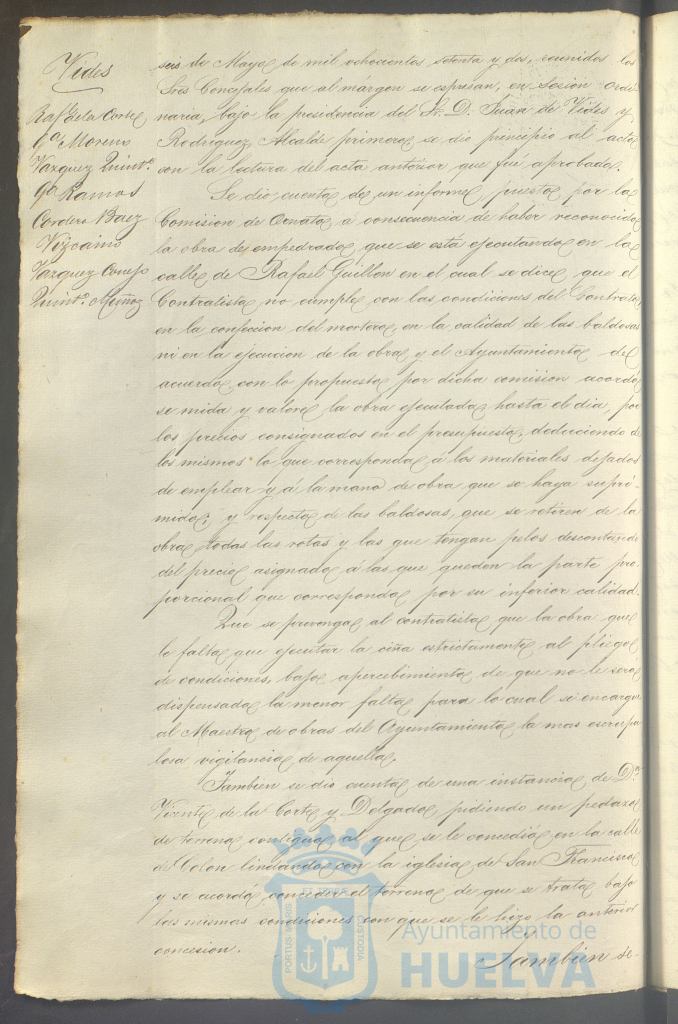 Vides
Raf. de la Corte
Ga. Moreno
Vazquez Quint.º
Ga. Ramos
Cordero Baez
Vizcaino
Vazquez Conejo
Quint.º Muñoz
seis de Mayo de mil ochocientos setenta y dos, reunidos los
Sres Concejales que al márgen se espresan, en Sesion ordi-
naria, bajo la presidencia del Sr. D. Juan de Vides y
Rodriguez, Alcalde primero se dio principio al acto
con la lectura del acta anterior que fué aprobada.
Se dio cuenta de un informe puesto por la
Comision de Ornato á consecuencia de haber reconocido
la obra de empedrado que se está ejecutando en la
calle de Rafael Guillen en el cual se dice que el
Contratista no cumple con las condiciones del Contrato
en la confeccion del mortero, en la calidad de las baldosas
ni en la ejecucion de la obra y el Ayuntamiento de
acuerdo con lo propuesto por dicha comision acordó
se mida y valore la obra ejecutada hasta el dia, por
los precios consignados en el presupuesto, deduciendo de
los mismos lo que corresponda á los materiales dejados
de emplear y á la mano de obra que se haya supri-
mido; y respecto de las baldosas, que se retiren de la
obra todas las rotas y las que tengan pelos descontando
del precio asignado á las que queden la parte pro
porcional que corresponda por su inferior calidad.
Que se prevenga al contratista que la obra que
le falta que ejecutar la ciña estrictamente al pliego
de condiciones, bajo apercebimiento de que no le será
dispensada la menor falta para lo cual se encargue
al Maestro de obras del Ayuntamiento la mas escrupu
losa vigilancia de aquella.
Tambien se dio cuenta de una instancia de Dn
Vicente de la Corte y Delgado, pidiendo un pedazo
de terreno contiguo al que se le concedió en la calle
de Colon lindando con la iglesia de San Francisco
y se acordó conceder el terreno de que se trata bajo
las mismas condiciones con que se le hizo la anterior
concesion.
Tambien se
PORTUS MARIS
ET TERRÆ
CUSTODIA
Ayuntamiento de
HUELVA